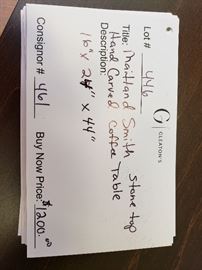 G
GLEATON'S
Lot # 446
Title: Maitland Smith Stone top
Hand Carved Coffee Table
Description:
16" x 24" x 44"
Consignor # 461
Buy Now Price: $1200.00